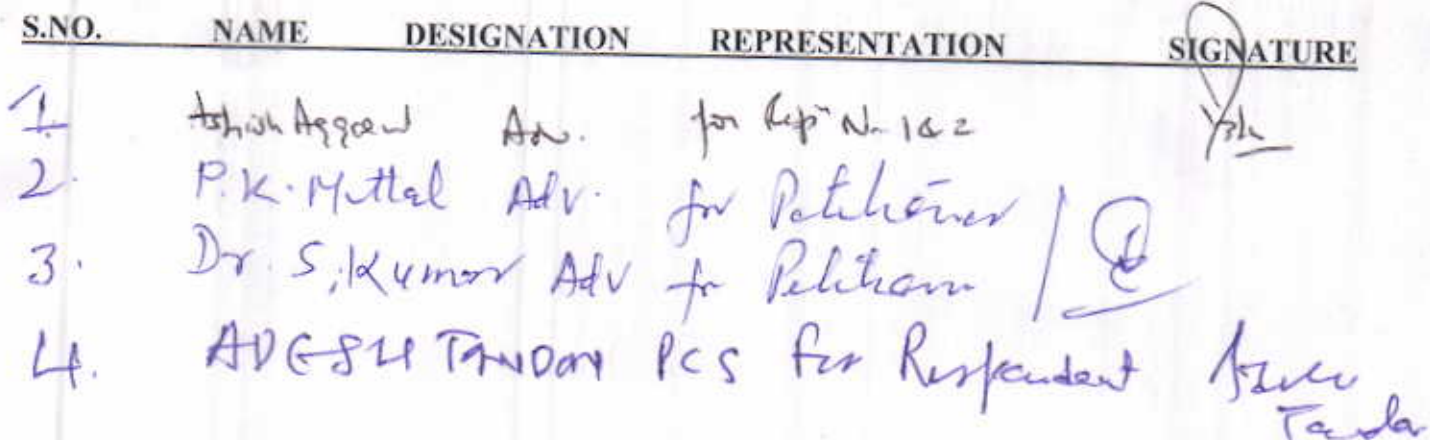 S.NO. NAME DESIGNATION REPRESENTATION SIGNATURE
1. Ashish Aggarwal Adv. for Resp No 1 & 2
2. P.K. Mittal Adv. for Petitioner
3. Dr. S. Kumar Adv for Petitioner
4. ADESH TANDON PCS for Respondent Adesh
Tandon